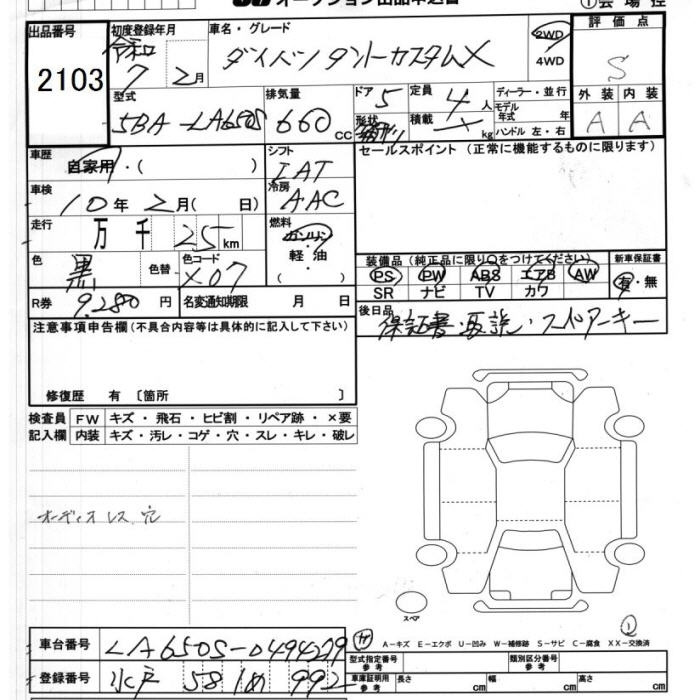 オークション出品申込書
出品番号
2103
初度登録年月
令和
7 2月
車名・グレード
ダイハツ タントカスタムX
2WD
4WD
評価点
S
外装 内装
A A
型式
5BA-LA650S
排気量
660 cc
ドア
5
形状
定員
4人
積載
kg
ディーラー・並行
モデル
年式 年
ハンドル 左・右
車歴
自家用・( )
シフト
IAT
セールスポイント(正常に機能するものに限ります)
車検
10年 2月( 日)
冷房
AAC
走行
万 千 25 km
燃料
ガソリン
軽油
( )
色
黒
色替
色コード
X07
装備品(純正品に限り○をつけてください)
PS PW ABS エアB AW
SR ナビ TV カワ
新車保証書
有・無
R券
9,280 円
名変通知期限 月 日
後日品
保証書・取説・スペアーキー
注意事項申告欄(不具合内容等は具体的に記入して下さい)
修復歴 有 〔箇所 〕
検査員
記入欄
FW キズ・飛石・ヒビ割・リペア跡・×要
内装 キズ・汚レ・コゲ・穴・スレ・キレ・破レ
オーディオレス 穴
スペア
車台番号
LA650S-0494279
A-キズ E-エクボ U-凹み W-補修跡 S-サビ C-腐食 XX-交換済
型式指定番号
参考
類別区分番号
参考
登録番号
水戸 581 992
車庫証明用
参考
長さ cm 幅 cm 高さ cm